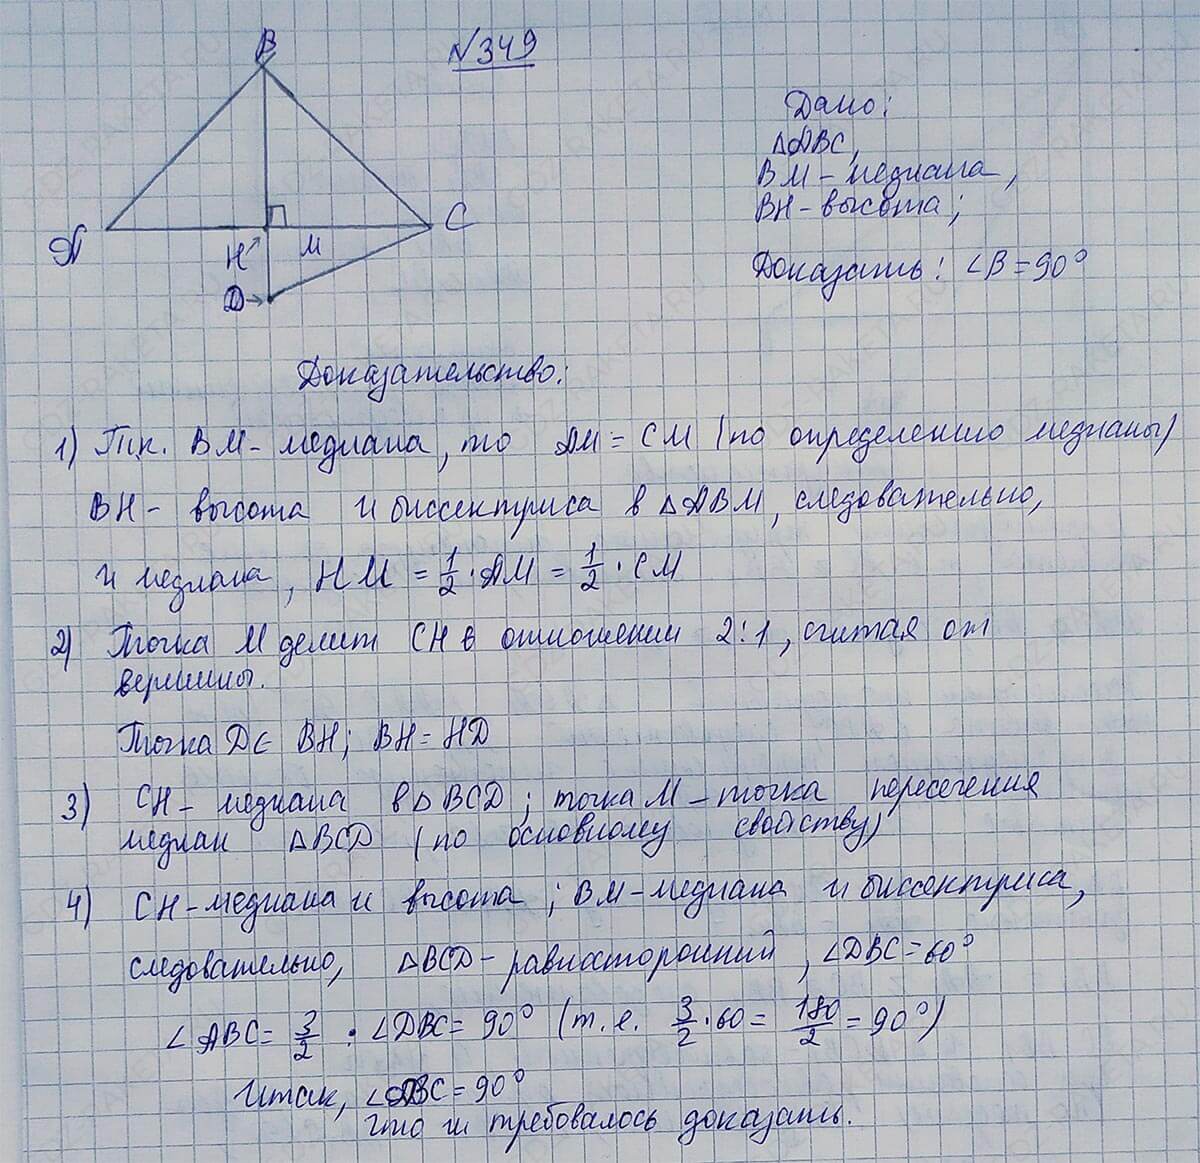 №349
B
A
H
M
C
D
Дано:
△ABC,
BM - медиана,
BH - высота;
Доказать: ∠B = 90°
Доказательство:
1) Т.к. BM - медиана, то AM = CM (по определению медианы)
BH - высота и биссектриса в △ABM, следовательно,
и медиана, HM = 1/2 · AM = 1/2 · CM
2) Точка M делит CH в отношении 2:1, считая от
вершины.
Точка D ∈ BH; BH = HD
3) CH - медиана в △BCD; точка M - точка пересечения
медиан △BCD (по основному свойству)
4) CH - медиана и высота; BM - медиана и биссектриса,
следовательно, △BCD - равносторонний, ∠DBC = 60°
∠ABC = 3/2 · ∠DBC = 90° (т.е. 3/2 · 60 = 180/2 = 90°)
Итак, ∠ABC = 90°
что и требовалось доказать.